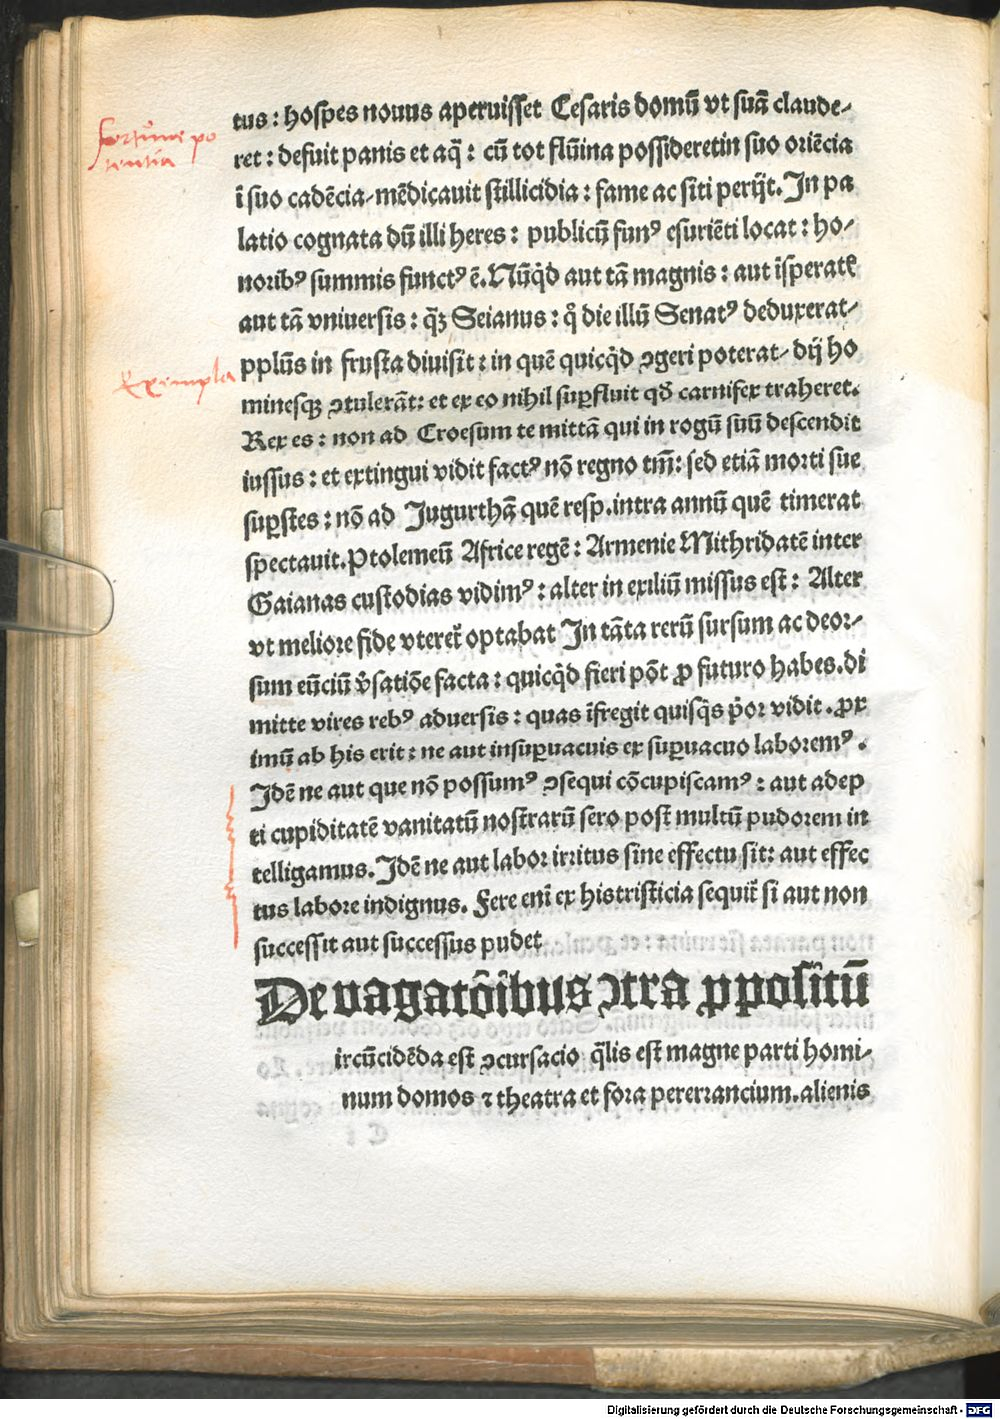 fortune po
tentia
tus : hoſpes nouus aperuiſſet Ceſaris domū vt ſuā claude⸗
ret : defuit panis et aq̄ : cū tot flūina poſſideret in ſuo oriēcia
ī ſuo cadēcia⸗ mēdicauit ſtillicidia : fame ac ſiti perijt. In pa
latio cognata dū illi heres : publicū funꝰ eſuriēti locat : ho⸗
noribꝰ ſummis functꝰ ē. Nūq̇d aut tā magnis : aut īſperatꝭ
aut tā vniuerſis : q̄ꝫ Seianus : q̊ die illū Senatꝰ deduxerat⸗
Exempla
ꝓplūs in fruſta diuiſit : in quē quicq̇d ꝯgeri poterat⸗ dij ho
mineſqꝫ ꝯtulerāt : et ex eo nihil ſuꝑfluit qd̄ carnifex traheret.
Rex es : non ad Croeſum te mittā qui in rogū ſuū deſcendit
iuſſus : et extingui vidit factꝰ nō regno tm̄ : ſed etiā morti ſue
ſuꝑſtes : nō ad Jugurthā quē reſp. intra annū quē timerat
ſpectauit. Ptolemeū Africe regē : Armenie Mithridatē inter
Gaianas cuſtodias vidimꝰ : alter in exiliū miſſus eſt : Alter
vt meliore fide vteret᷑ optabat In tāta rerū ſurſum ac deor⸗
ſum eūciū v̓ſatiōe facta : quicq̇d fieri pōt ꝓ futuro habes. di
mitte vires rebꝰ aduerſis : quas īfregit quiſq̇s p̓or vidit. ꝓx
imū ab his erit : ne aut inſuꝑuacuis ex ſuꝑuacuo laboremꝰ .
Idē ne aut que nō poſſumꝰ ꝯſequi cōcupiſcamꝰ : aut adep
ti cupiditatē vanitatū noſtrarū ſero poſt multū pudorem in
telligamus. Idē ne aut labor irritus ſine effectu ſit : aut effec
tus labore indignus. Fere enī ex his triſticia ſequit᷑ ſi aut non
ſucceſſit aut ſucceſſus pudet
De vagatōībus ꝯtra ꝓpoſitū
ircūcidēda eſt ꝯcurſacio q̄lis eſt magne parti homi⸗
num domos ⁊ theatra et fora pererrancium. alienis
Digitalisierung gefördert durch die Deutsche Forschungsgemeinschaft - DFG